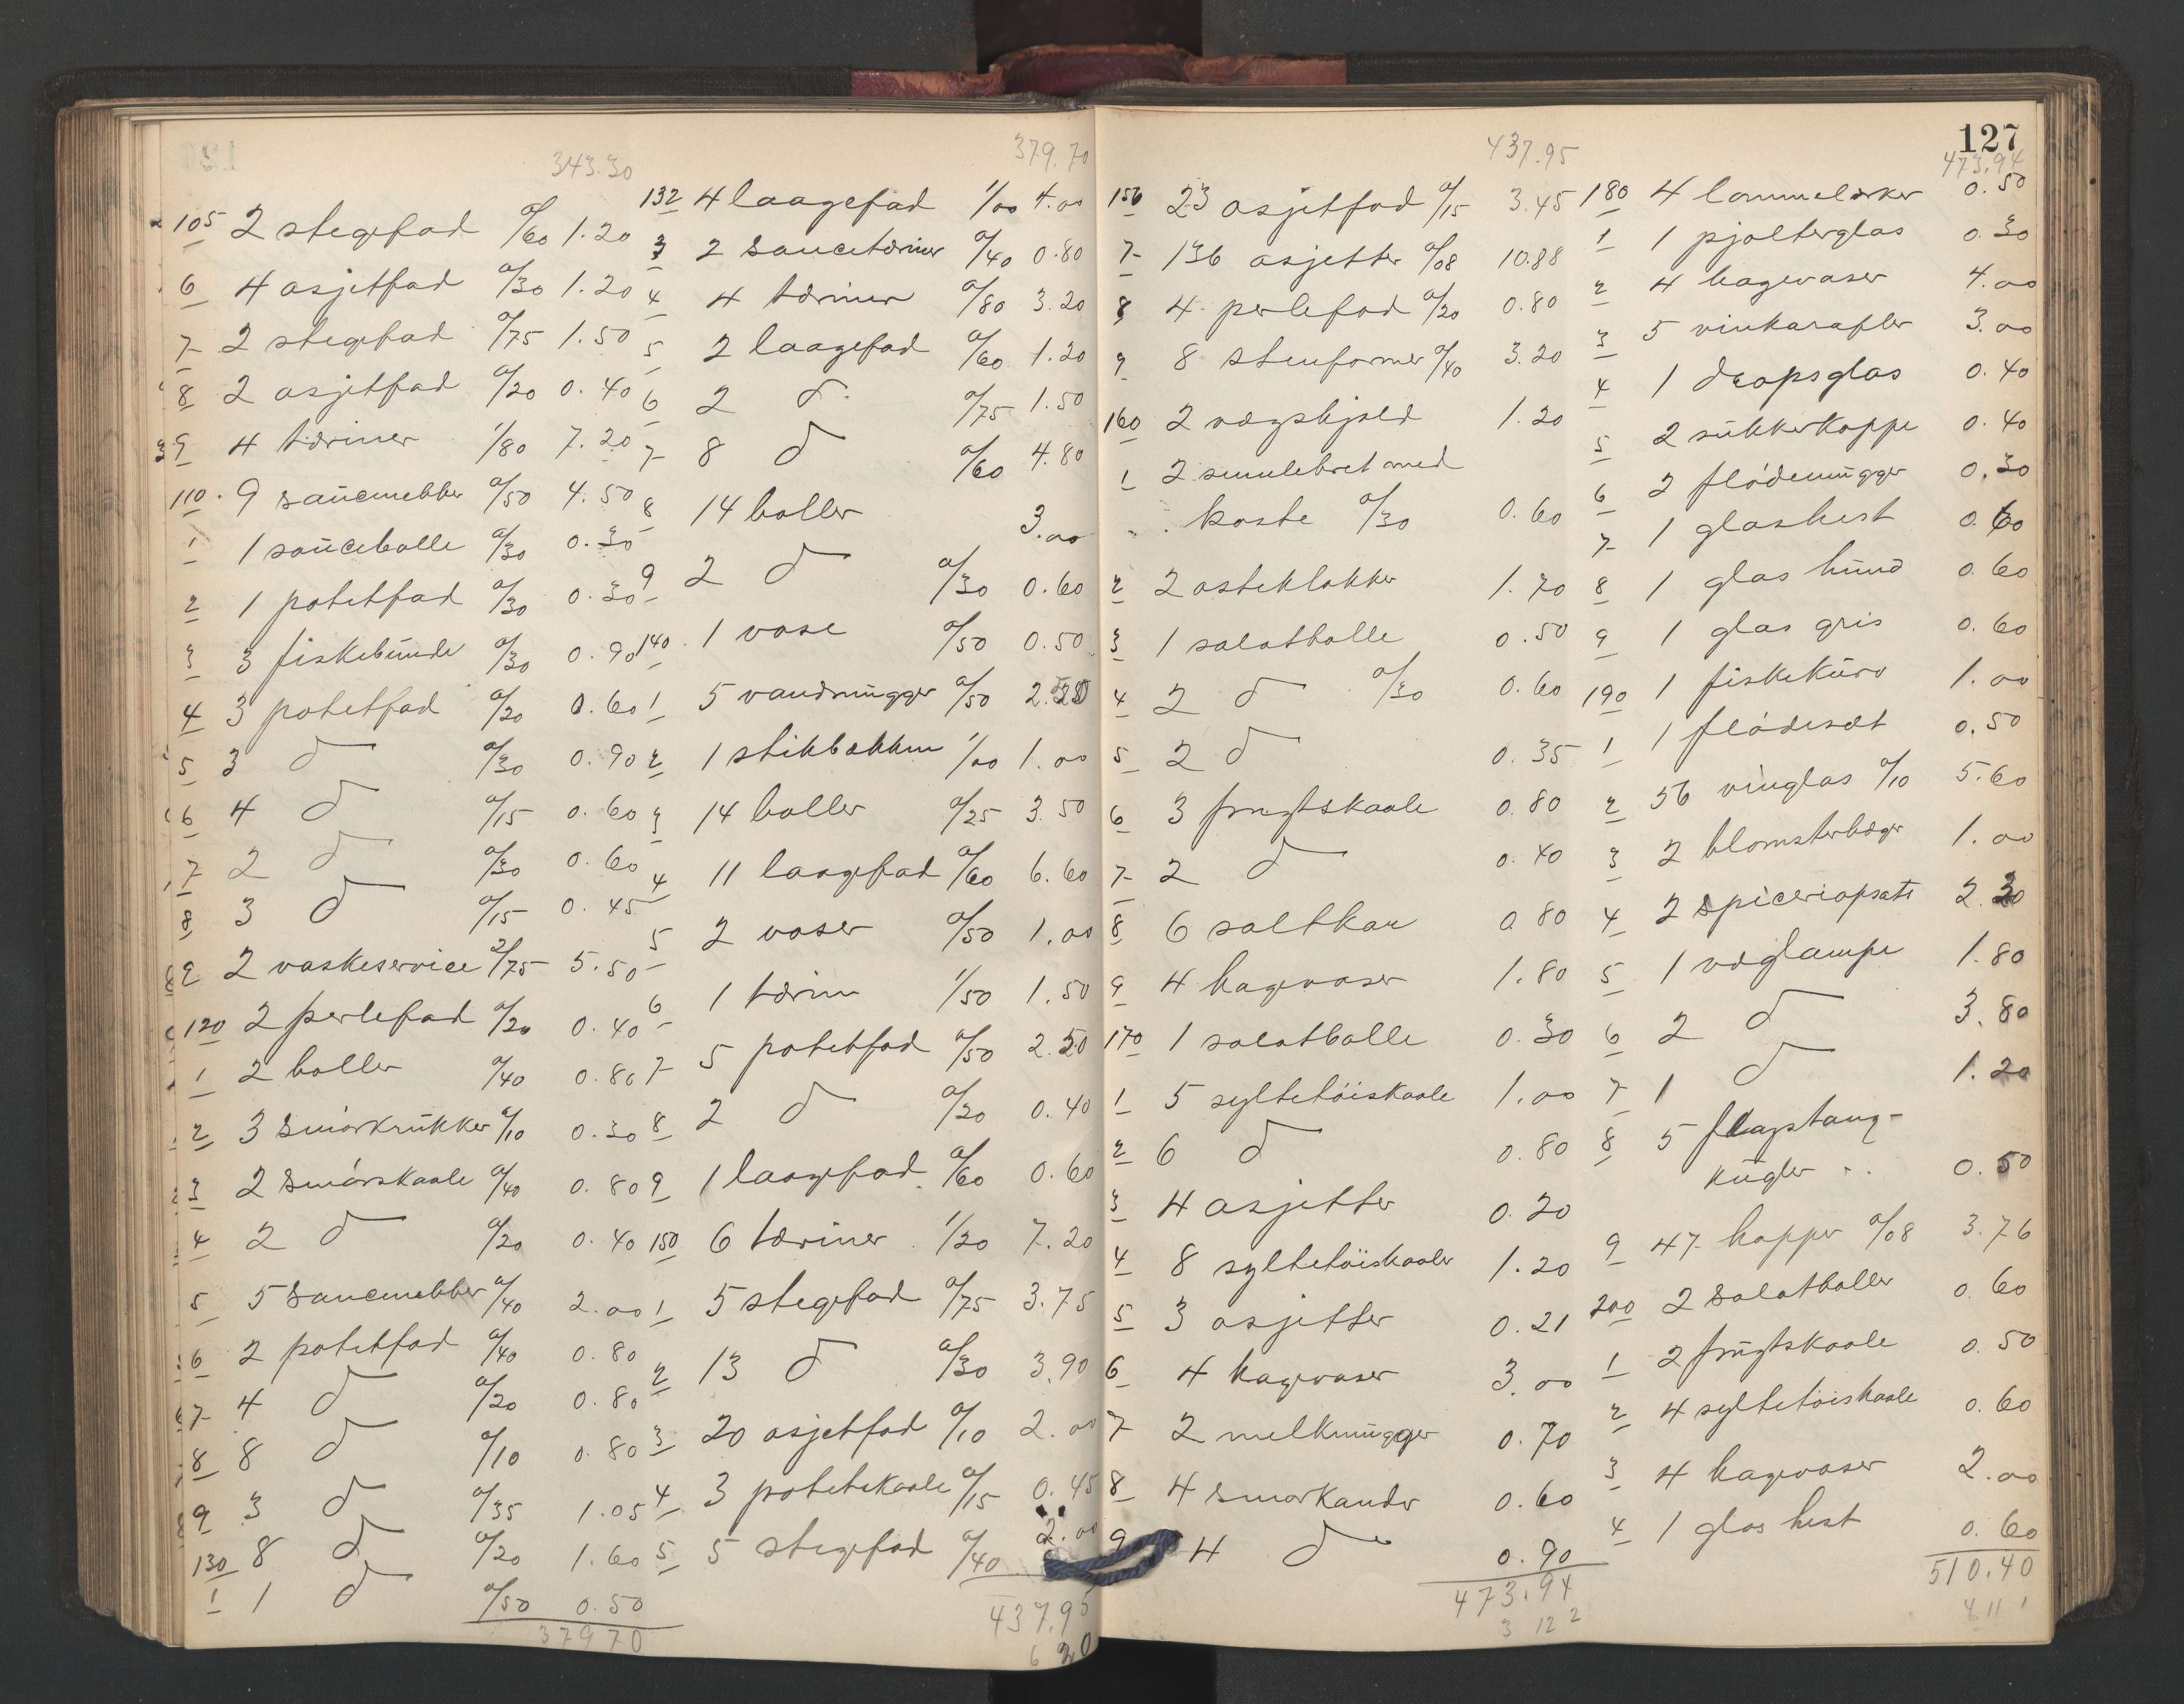 343.30
105 2 stegefad a/60 1.20
6 4 asjetfad a/30 1.20
7 2 stegefad a/75 1.50
8 2 asjetfad a/20 0.40
9 4 tæriner 1/80 7.20
110 9 saucenebber a/50 4.50
1 1 sauceballe a/30 0.30
2 1 potetfad a/30 0.30
3 3 fiskebunde a/30 0.90
4 3 potetfad a/20 0.60
5 3 do a/30 0.90
6 4 do a/15 0.60
7 2 do a/30 0.60
8 3 do a/15 0.45
9 2 vaskeservice 2/75 5.50
120 2 perlefad a/20 0.40
1 2 boller a/40 0.80
2 3 smörkrukker a/10 0.30
3 2 smörskaale a/40 0.80
4 2 do a/20 0.40
5 5 saucenebber a/40 2.00
6 2 potetfad a/40 0.80
7 4 do a/20 0.80
8 8 do a/10 0.80
9 3 do a/35 1.05
130 8 do a/20 1.60
1 1 do a/50 0.50
379 70
379.70
132 4 laagefad 1/00 4.00
3 2 saucetæriner a/40 0.80
4 4 tæriner a/80 3.20
5 2 laagefad a/60 1.20
6 2 do a/75 1.50
7 8 do a/60 4.80
8 14 boller 3.00
9 2 do a/30 0.60
140 1 vase a/50 0.50
1 5 vandmugger a/50
2 1 stikbækken 1/00 1.00
3 14 boller a/25 3.50
4 11 laagefad a/60 6.60
5 2 vaser a/50 1.00
6 1 tærin 1/50 1.50
7 5 potetfad a/50 2.50
8 2 do a/20 0.40
9 1 laagefad a/60 0.60
150 6 tæriner 1/20 7.20
1 5 stegefad a/75 3.75
2 13 do a/30 3.90
3 20 asjetfad a/10 2.00
4 3 potetskaale a/15 0.45
5 5 stegefad a/40 2.00
437.95
6 20
437.95
156 23 asjetfad a/15 3.45
7 136 asjetter a/08 10.88
8 4 perlefad a/20 0.80
9 8 stenformer a/40 3.20
160 2 vægskjold 1.20
1 2 smulebret med
koste a/30 0.60
2 2 osteklokker 1.70
3 1 salatballe 0.50
4 2 do a/30 0.60
5 2 do 0.35
6 3 frugtskaale 0.80
7 2 do 0.40
8 6 saltkar 0 80
9 4 hagevaser 1.80
170 1 salatballe 0.30
1 5 syltetöiskaale 1.00
2 6 do 0.80
3 4 asjetter 0.20
4 8 syltetöiskaaler 1.20
5 3 asjetter 0.21
6 4 hagevaser 3.00
7 2 melkmugger 0.70
8 4 smörkander 0.60
9 4 do 0.90
473.94
3 12 2
127
473.94
180 4 lommelærker 0.50
1 1 pjolterglas 0.30
2 4 hagevaser 4.00
3 5 vinkarafler 3.00
4 1 dropsglas 0.40
5 2 sukkerkoppe 0.40
6 2 flödemugger 0.30
7 1 glashest 0.60
8 1 glas hund 0.60
9 1 glas gris 0.60
190 1 fiskekurv 1.00
1 1 flödesæt 0.50
2 56 vinglas a/10 5.60
3 2 blomsterbæger 1.00
4 2 spiceriopsats 2.20
5 1 væglampe 1.80
6 2 do 3.80
7 1 do 1.20
8 5 flagstang-
kugler 0.50
9 47 kopper a/08 3.76
200 2 salatballer 0.60
1 2 frugtskaale 0.50
2 4 syltetöiskaale 0.60
3 4 hagevaser 2.00
4 1 glas hest 0.60
510.40
4 11 1